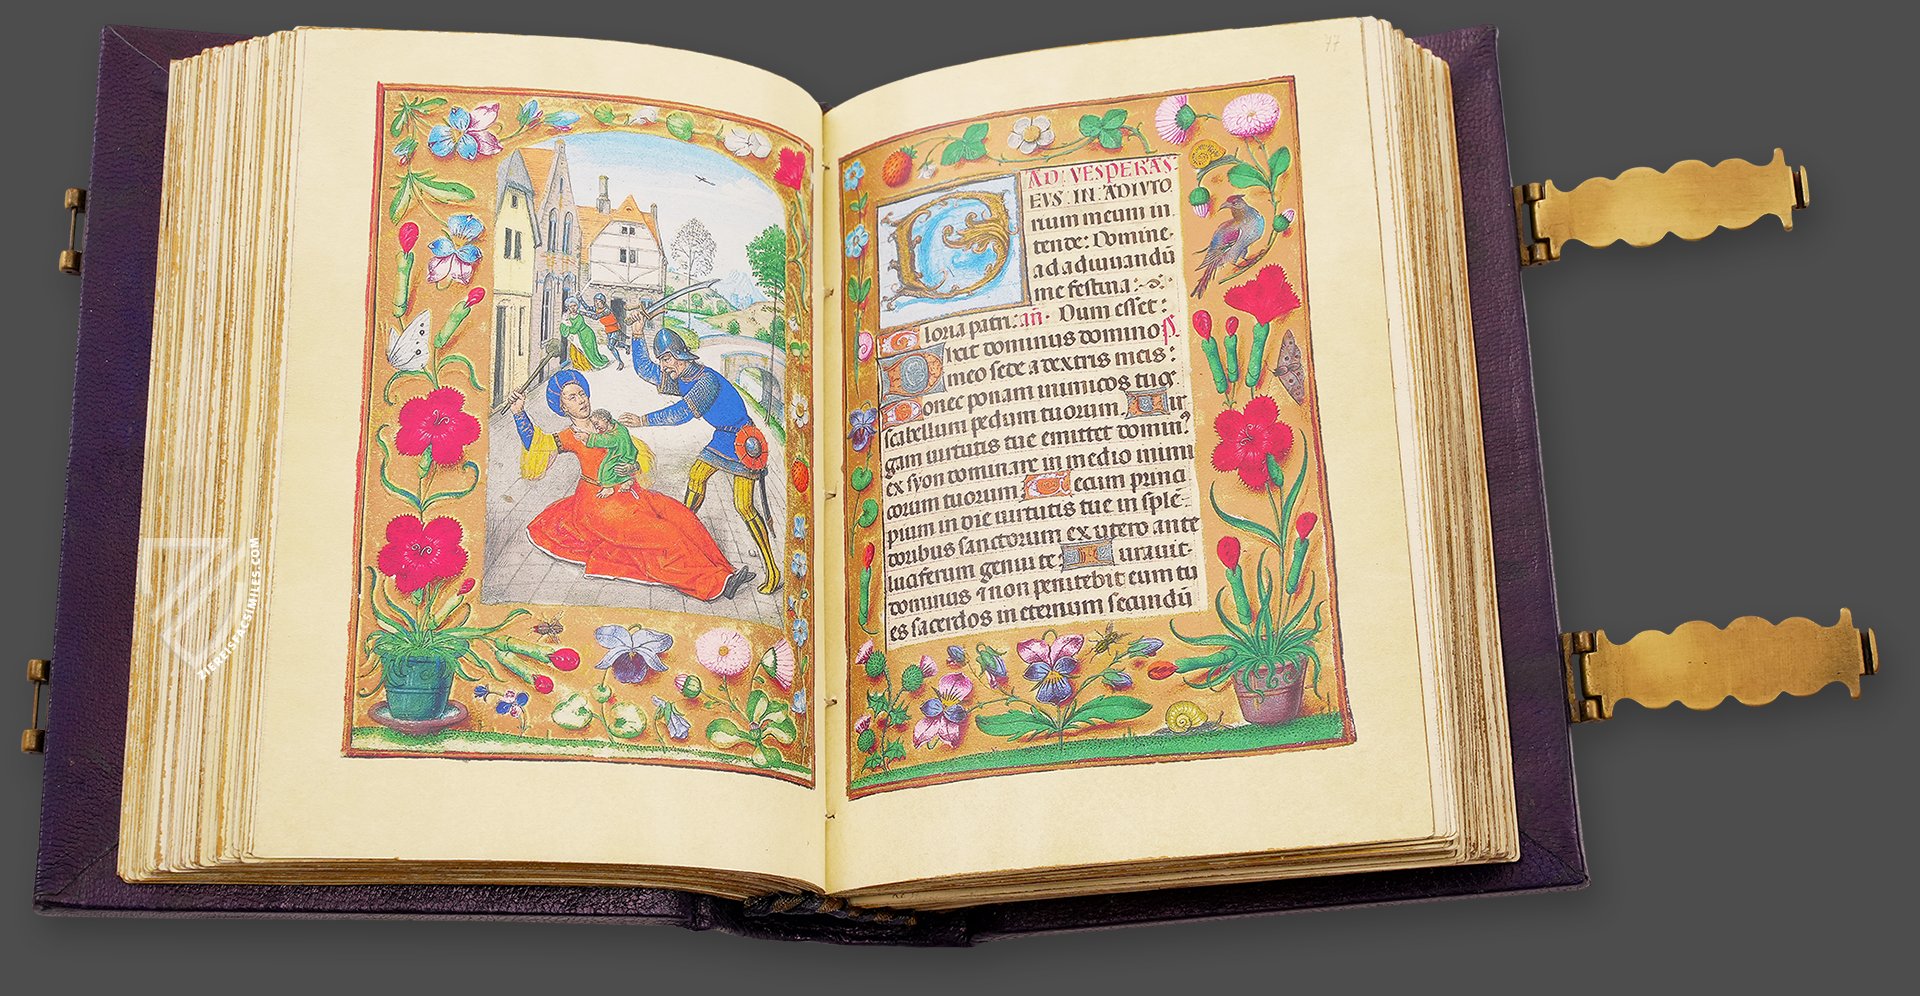 77
AD: VESPERAS:
DEVS. IN. ADIVTO
rium meum in
tende: Domine
ad adiuuandū
me festina:
Gloria patri: an̄. Dum esset:
Dixit dominus domino ps.
meo sede a dextris meis:
Donec ponam inimicos tuos
scabellum pedum tuorum. Uir
gam uirtutis tue emittet domin9
ex syon dominare in medio inimi
corum tuorum. Tecum princi
pium in die uirtutis tue in splē
doribus sanctorum ex utero ante
luciferum genui te Iurauit
dominus ⁊ non penitebit eum tu
es sacerdos in eternum secundū
ZIEREISFACSIMILES.COM